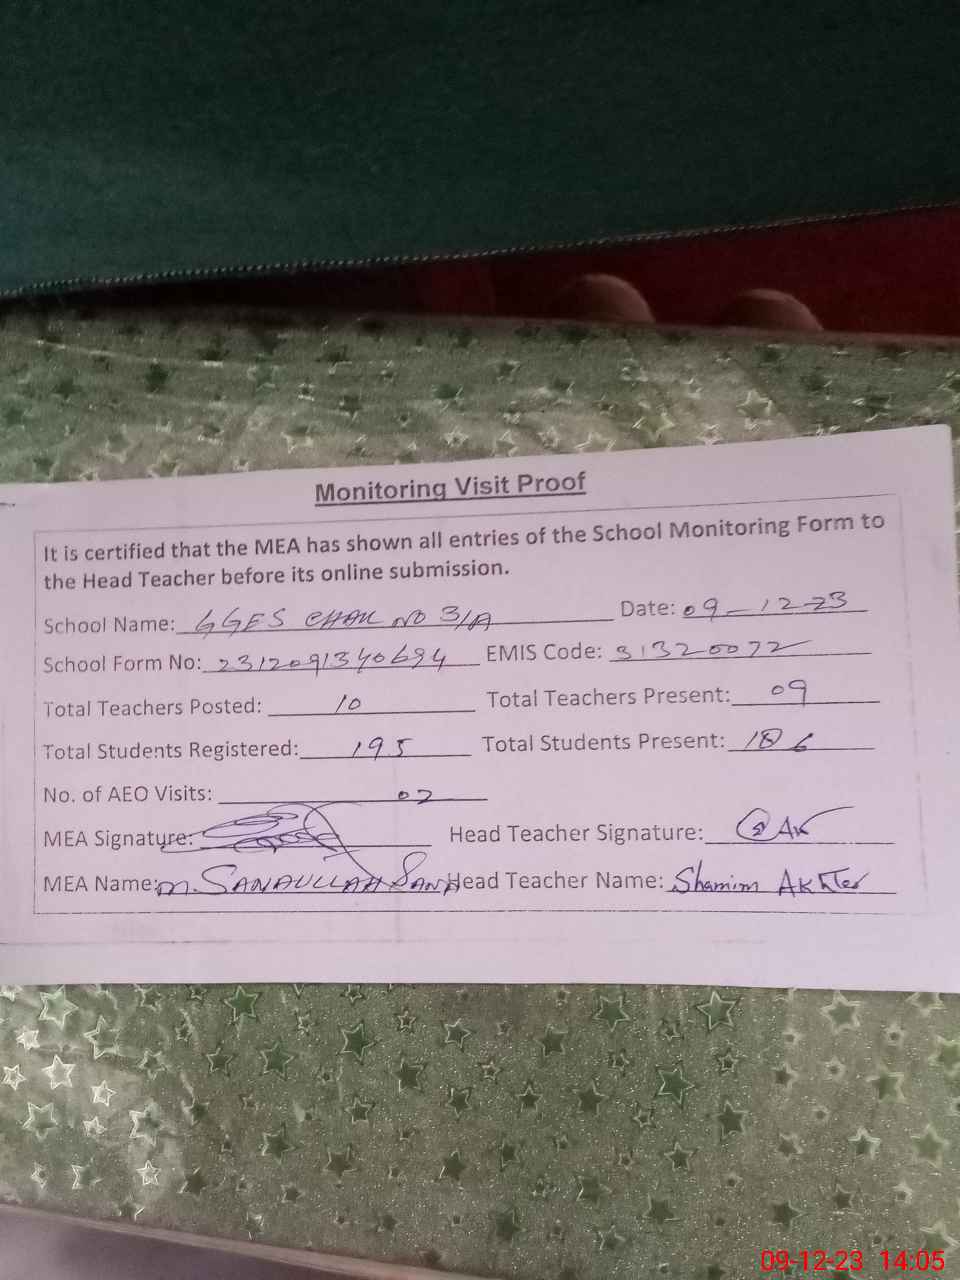 Monitoring Visit Proof
It is certified that the MEA has shown all entries of the School Monitoring Form to
the Head Teacher before its online submission.
School Name: GGES CHAK NO 3/A Date: 09-12-23
School Form No: 2312091340694 EMIS Code: 31320072
Total Teachers Posted: 10 Total Teachers Present: 09
Total Students Registered: 195 Total Students Present: 186
No. of AEO Visits: 02
MEA Signature: Head Teacher Signature:
MEA Name: M. SANAULLAH Head Teacher Name: Shamim Akhter
09-12-23 14:05